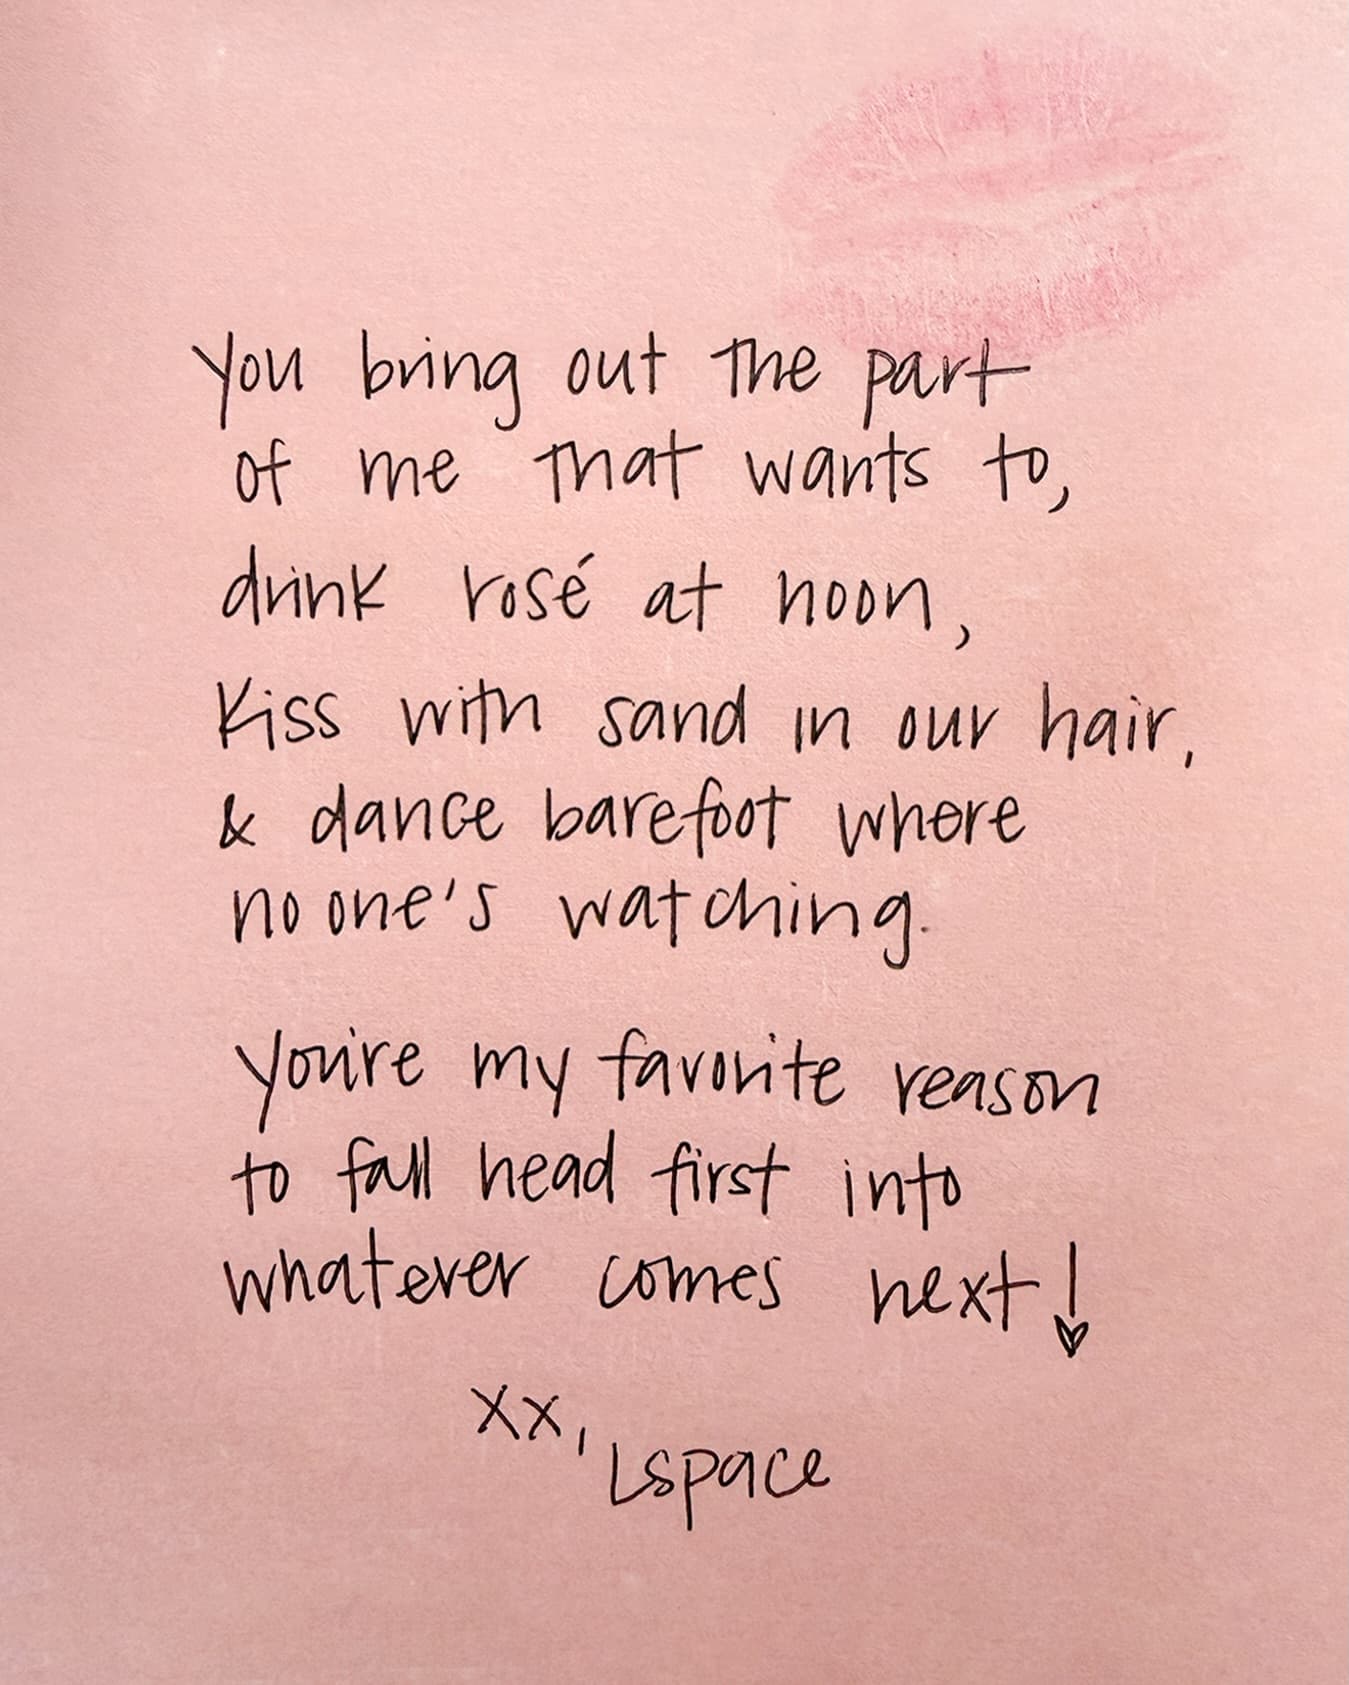 You bring out the part
of me that wants to,
drink rosé at noon,
Kiss with sand in our hair,
& dance barefoot where
no one's watching.
You're my favorite reason
to fall head first into
whatever comes next!
xx,
Lspace